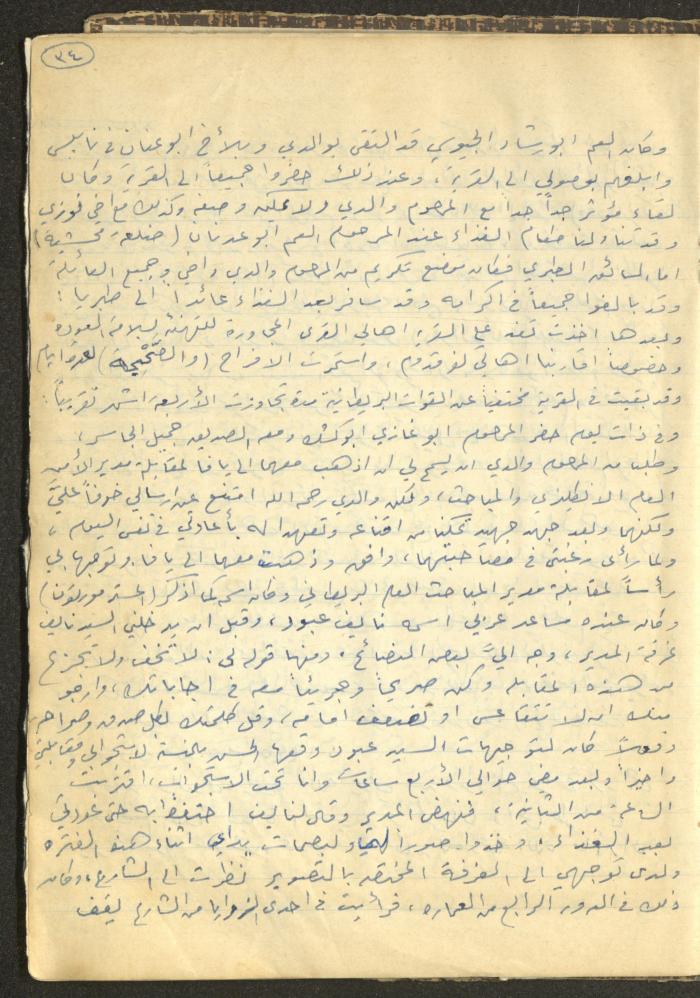 ٣٤
وكان العم ابو رشاد الجيوسي قد التقى بوالدي وبالأخ ابو عنان في نابلس
وابلغهم بوصولي الى القرية، وعند ذلك حضروا جميعاً الى القرية وكان
لقاء مؤثر جداً جداً مع المرحوم والدي ولا يمكن وصفه وكذلك مع اخي فوزي
وقد تناولنا طعام الغذاء عند المرحوم العم ابو عدنان (ضلعة محشية)
اما السائق الطبري فكان موضع تكريم من المرحوم والدي واخي وجميع العائلة
وقد بالغوا جميعاً في اكرامه وقد سافر بعد الغذاء عائداً الى طبريا:
وبعدها اخذت تفد على القرية اهالي القرى المجاورة للتهنئة بسلامة العودة
وخصوصاً اقاربنا اهالي كفر قدوم، واستمرت الافراح (والصحجة) لعدة ايام
وقد بقيت في القرية مختفياً عن القوات البريطانية مدة تجاوزت الأربعة اشهر تقريباً:
وفي ذات يوم حضر المرحوم ابو غازي ابو كشك ومعه الصديق جميل الجاسر،
وطلبا من المرحوم والدي ان يسمح لي ان اذهب معهما الى يافا لمقابلة مدير الأمن
العام الانكليزي والمباحث، ولكن والدي رحمه الله امتنع عن ارسالي خوفاً عليّ
ولكنهما وبعد جهد جهيد تمكنا من اقناعه وتعهدا له بأعادتي في نفس اليوم،
ولما رأى رغبتي في مصاحبتهما، وافق وذهبت معهما الى يافا وتوجها بي
رأساً لمقابلة مدير المباحث العام البريطاني وكان اسمه كما اذكر (المستر مورتون)
وكان عنده مساعد عربي اسمه نايف عبود، وقبل ان يدخلني السيد نايف
غرفة المدير، وجه اليّ بعض النصائح، ومنها قوله لي: لا تخف ولا تجزع
من هذه المقابلة وكن صريحاً وجريئاً معه في اجاباتك، وارجو
منك ان لا تتقاعس او تضعف امامه، وقل كلمتك بكل صدق وصراحة،
وفعلاً كان لتوجيهات السيد عبود وقعها الحسن بالنسبة لاستجوابي ومقابلتي
واخيراً وبعد مضي حوالي الأربع ساعات وانا تحت الاستجواب، اقتربت
الساعة من الثانية، فنهض المدير وقال لنايف احتفظ به حتى عودتي
بعد الغذاء، وخذوا صوراً له وبصمات يداي اثناء هذه الفترة
ولدى توجهي الى الغرفة المختصة بالتصوير نظرت الى الشارع، وكان
ذلك في الدور الرابع من العمارة، فرأيت في احدى الزوايا من الشارع يقف